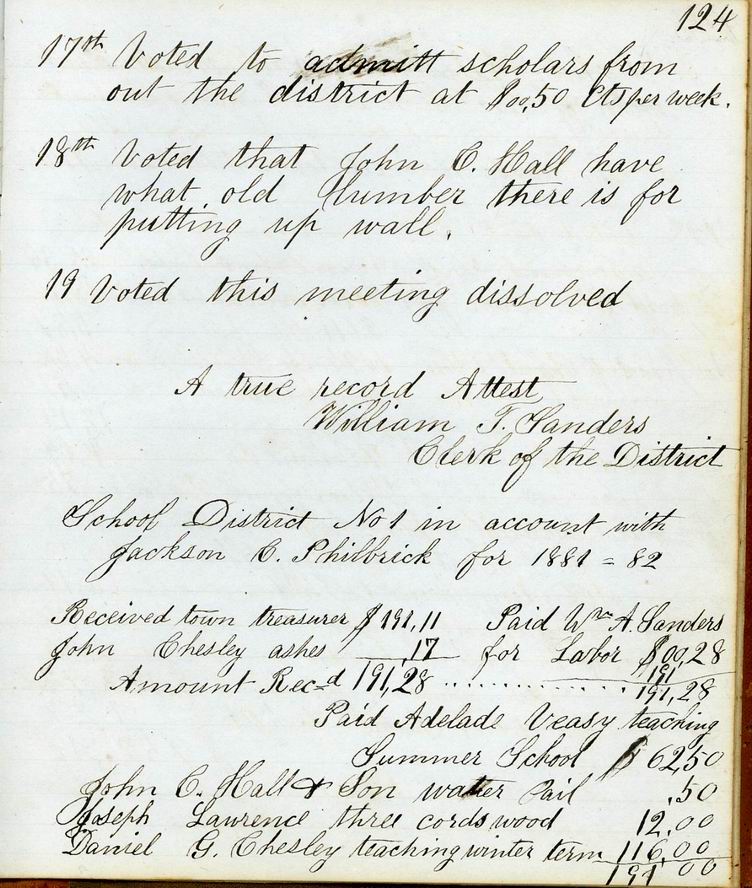 124
17th Voted to admitt scholars from
out the district at $00,50 cts per week.
18th Voted that John C. Hall have
what old lumber there is for
putting up wall.
19 Voted this meeting dissolved
A true record Attest
William T. Sanders
Clerk of the District
School District No 1 in account with
Jackson C. Philbrick for 1881 = 82
Received town treasurer $191,11 Paid Wm A. Sanders
John Chesley ashes ,17 for Labor $00,28
191
Amount Rec-d 191,28 .................. 191,28
Paid Adelade Veasy teaching
Summer School $62,50
John C. Hall & Son water Pail .50
Joseph Lawrence three cords wood 12.00
Daniel G. Chesley teaching winter term 116,00
191 00